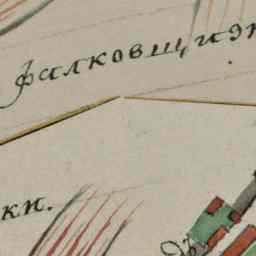 фалковщизн
ки.